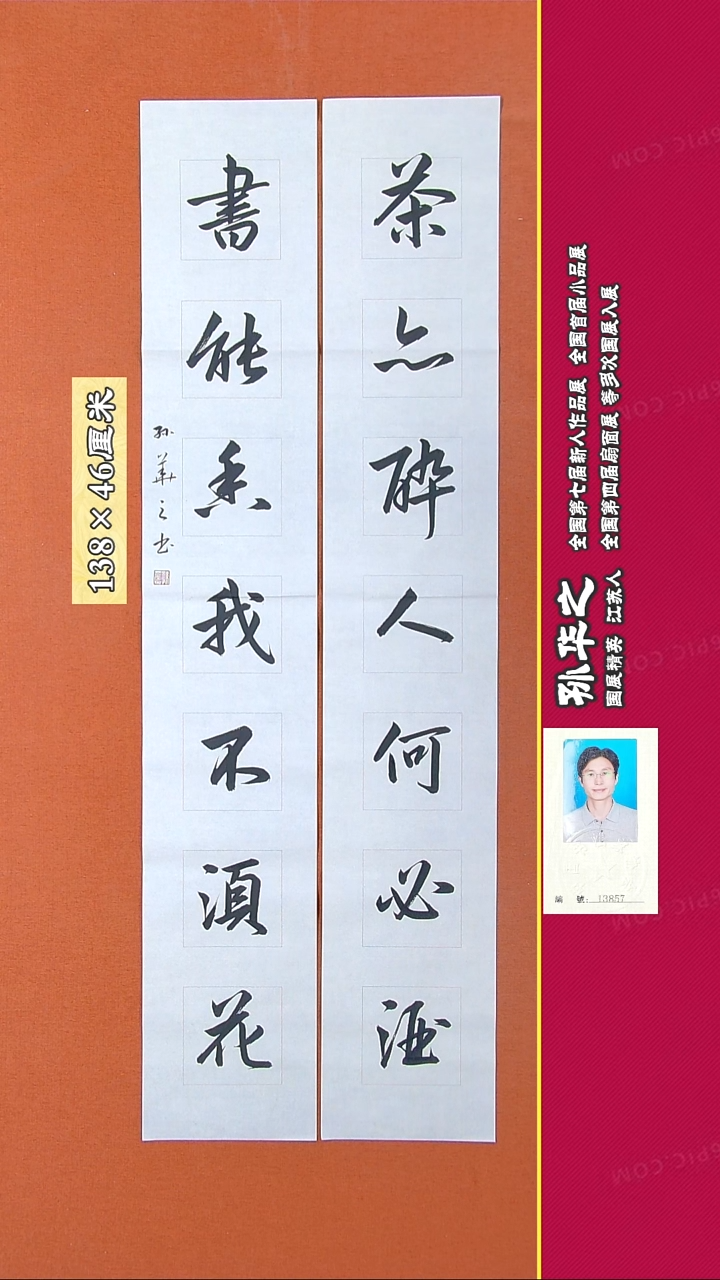 茶亦醉人何必酒
書能香我不須花
孙華之书
138×46厘米
孙华之
国展精英 江苏人
全国第七届新人作品展 全国首届小品展
全国第四届扇面展 等多次国展入展
編 號: 13857